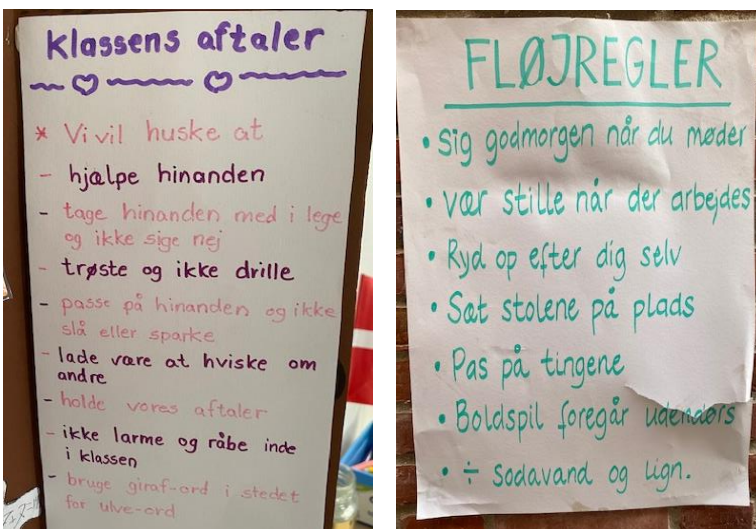 Klassens aftaler
* Vi vil huske at
- hjælpe hinanden
- tage hinanden med i lege
og ikke sige nej
- trøste og ikke drille
- passe på hinanden og ikke
slå eller sparke
- lade være at hviske om
andre
- holde vores aftaler
- ikke larme og råbe inde
i klassen
- bruge giraf-ord i stedet
for ulve-ord
FLØJREGLER
• Sig godmorgen når du møder
• vær stille når der arbejdes
• Ryd op efter dig selv
• Sæt stolene på plads
• Pas på tingene
• Boldspil foregår udendørs
• ÷ sodavand og lign.